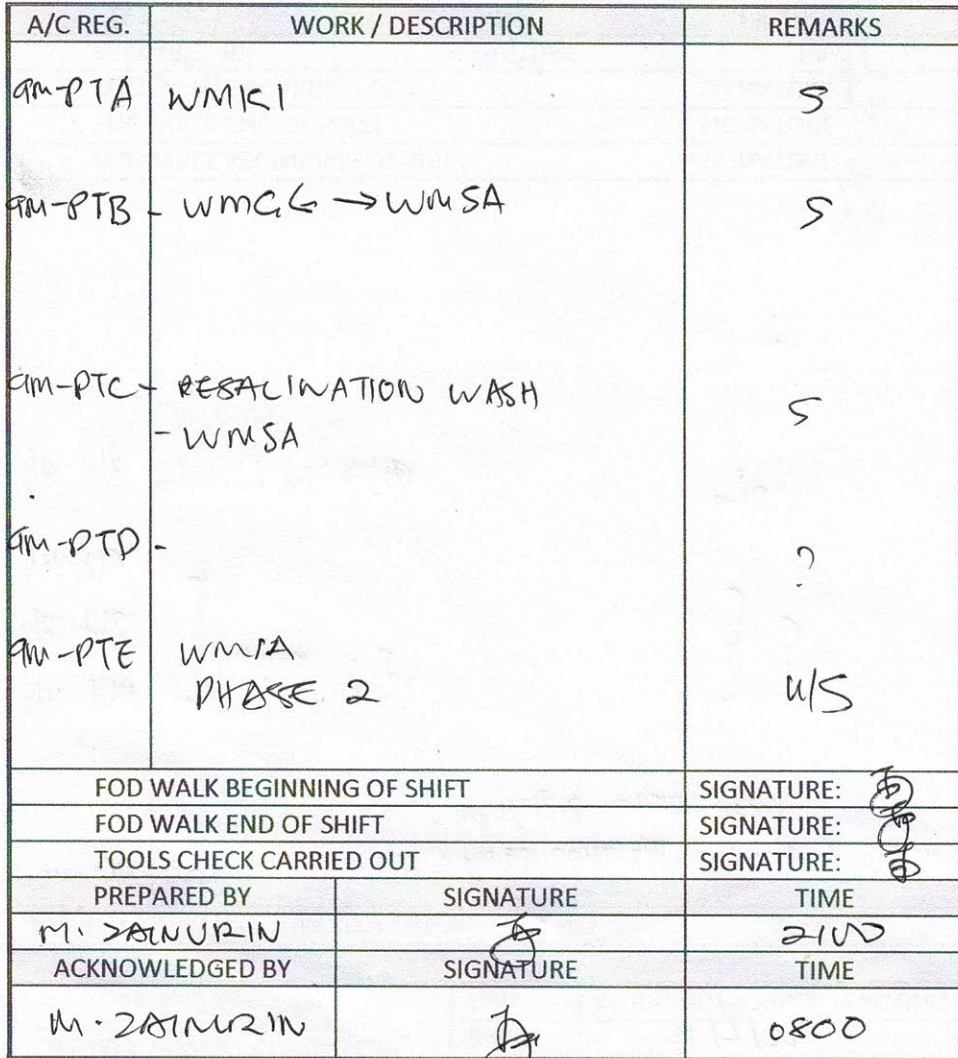 A/C REG. WORK / DESCRIPTION REMARKS
9M-PTA WMKI S
9M-PTB - WMGG → WMSA S
9M-PTC - RESALINATION WASH
- WMSA S
9M-PTD - ?
9M-PTE WMSA
PHASE 2 U/S
FOD WALK BEGINNING OF SHIFT SIGNATURE:
FOD WALK END OF SHIFT SIGNATURE:
TOOLS CHECK CARRIED OUT SIGNATURE:
PREPARED BY SIGNATURE TIME
M. ZAINURIN 2100
ACKNOWLEDGED BY SIGNATURE TIME
M. ZAINURIN 0800